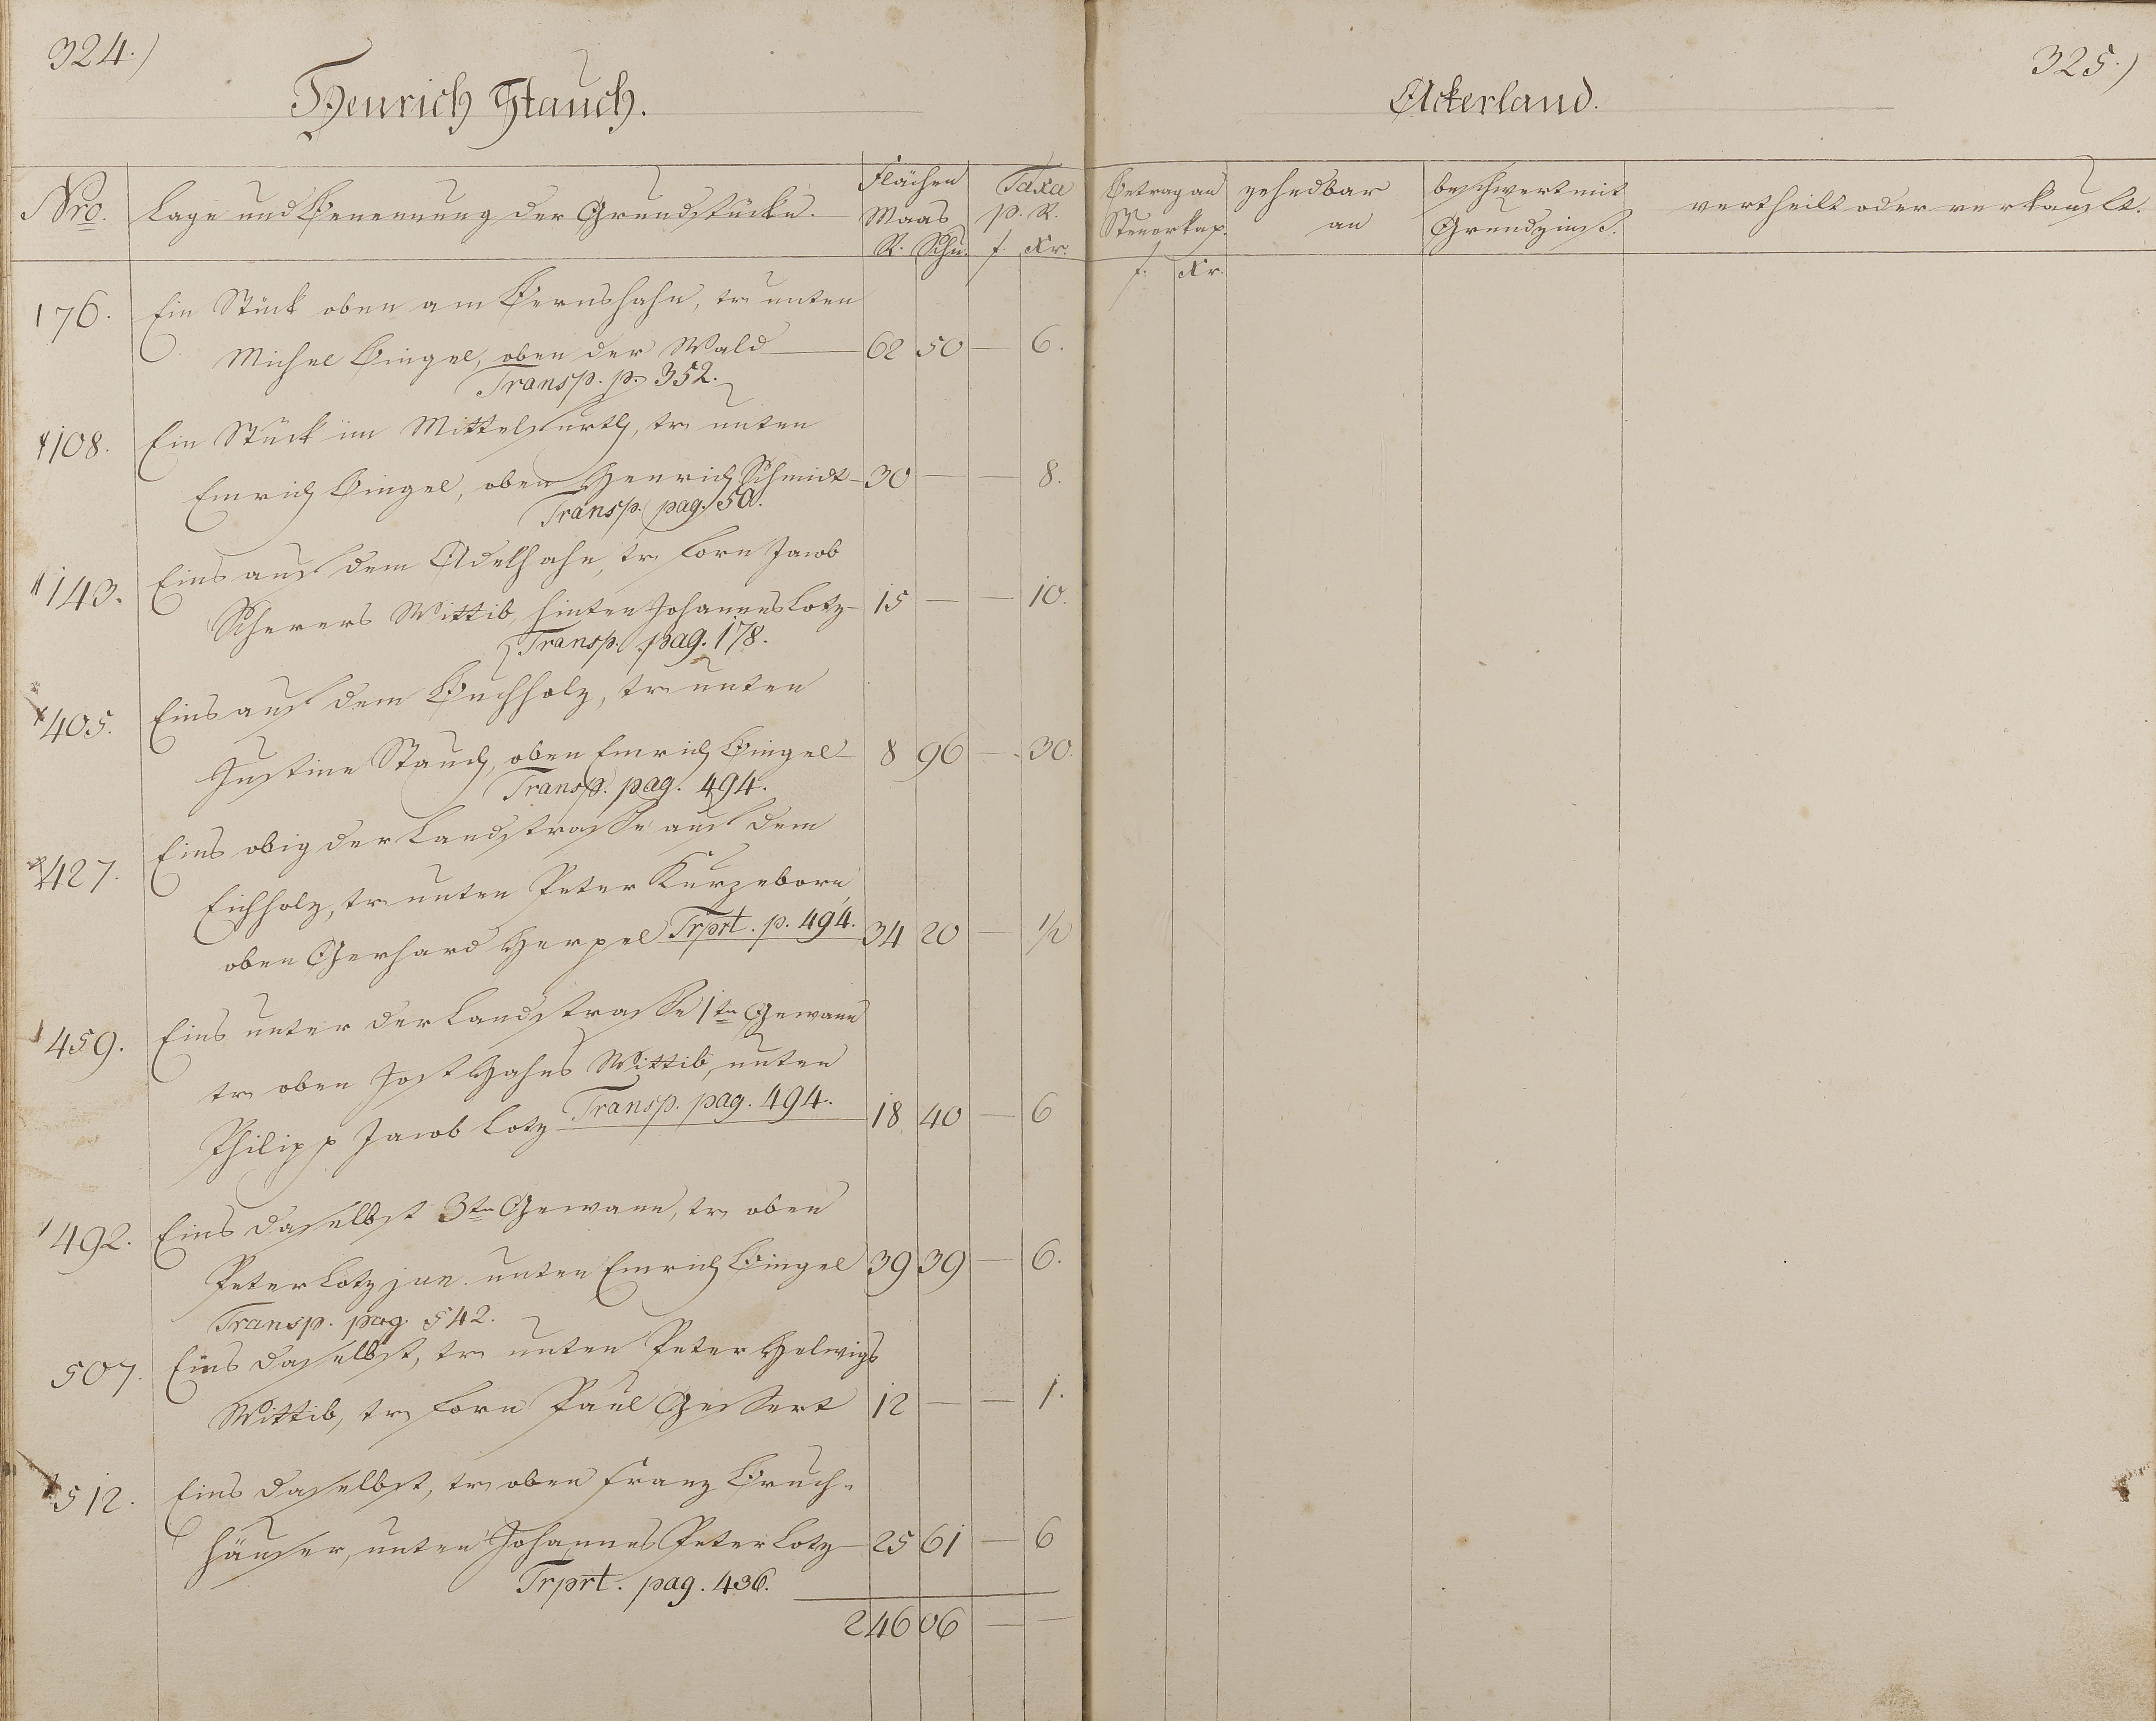 324.)
Henrich Stauch.
Nro. Lage und Benennung der Grundstücke. Flächen Maas R. Schu. Taxa p. R. f. Xr.
176. Ein Stück oben am Bernshahn, tr unten
Michel Bingel, oben der Wald 62 50 — 6.
Transp. p. 352.
108. Ein Stück im Mittelfurth, tr unten
Emrich Bingel, oben Henrich Schmidt 30 — — 8.
Transp. pag. 50.
143. Eins auf dem Adelhahn, tr forn Jacob
Scherers Wittib, hinten Johannes Lotz 15 — — 10.
Transp. pag. 178.
405. Eins auf dem Buchholz, tr unten
Justine Stauch, oben Emrich Bingel 8 96 — 30.
Transp. pag. 494.
427. Eins obig der Landstrasse auf dem
Eichholz, tr unten Peter Kurzeborn
oben Gerhard Herpel Trprt. p. 494. 34 20 — 1/2
459. Eins unter der Landstrasse 1te Gewann
tr oben Jost Hahns Wittib, unten
Philipp Jacob Lotz Transp. pag. 494. 18 40 — 6
492. Eins daselbst 3te Gewann, tr oben
Peter Lotz jun. unten Emrich Bingel 39 39 — 6.
Transp. pag. 542.
507. Eins daselbst, tr unten Peter Helwigs
Wittib, tr forn Paul Gessert 12 — — 1.
512. Eins daselbst, tr oben Franz Bruch-
häuser, unten Johannes Peter Lotz 25 61 — 6
Trprt. pag. 436.
246 06 — —
325.)
Ackerland.
Betrag an Steuerkap. f. Xr. zehndbar an beschwert mit Grundzinß. vertheilt oder verkauft.